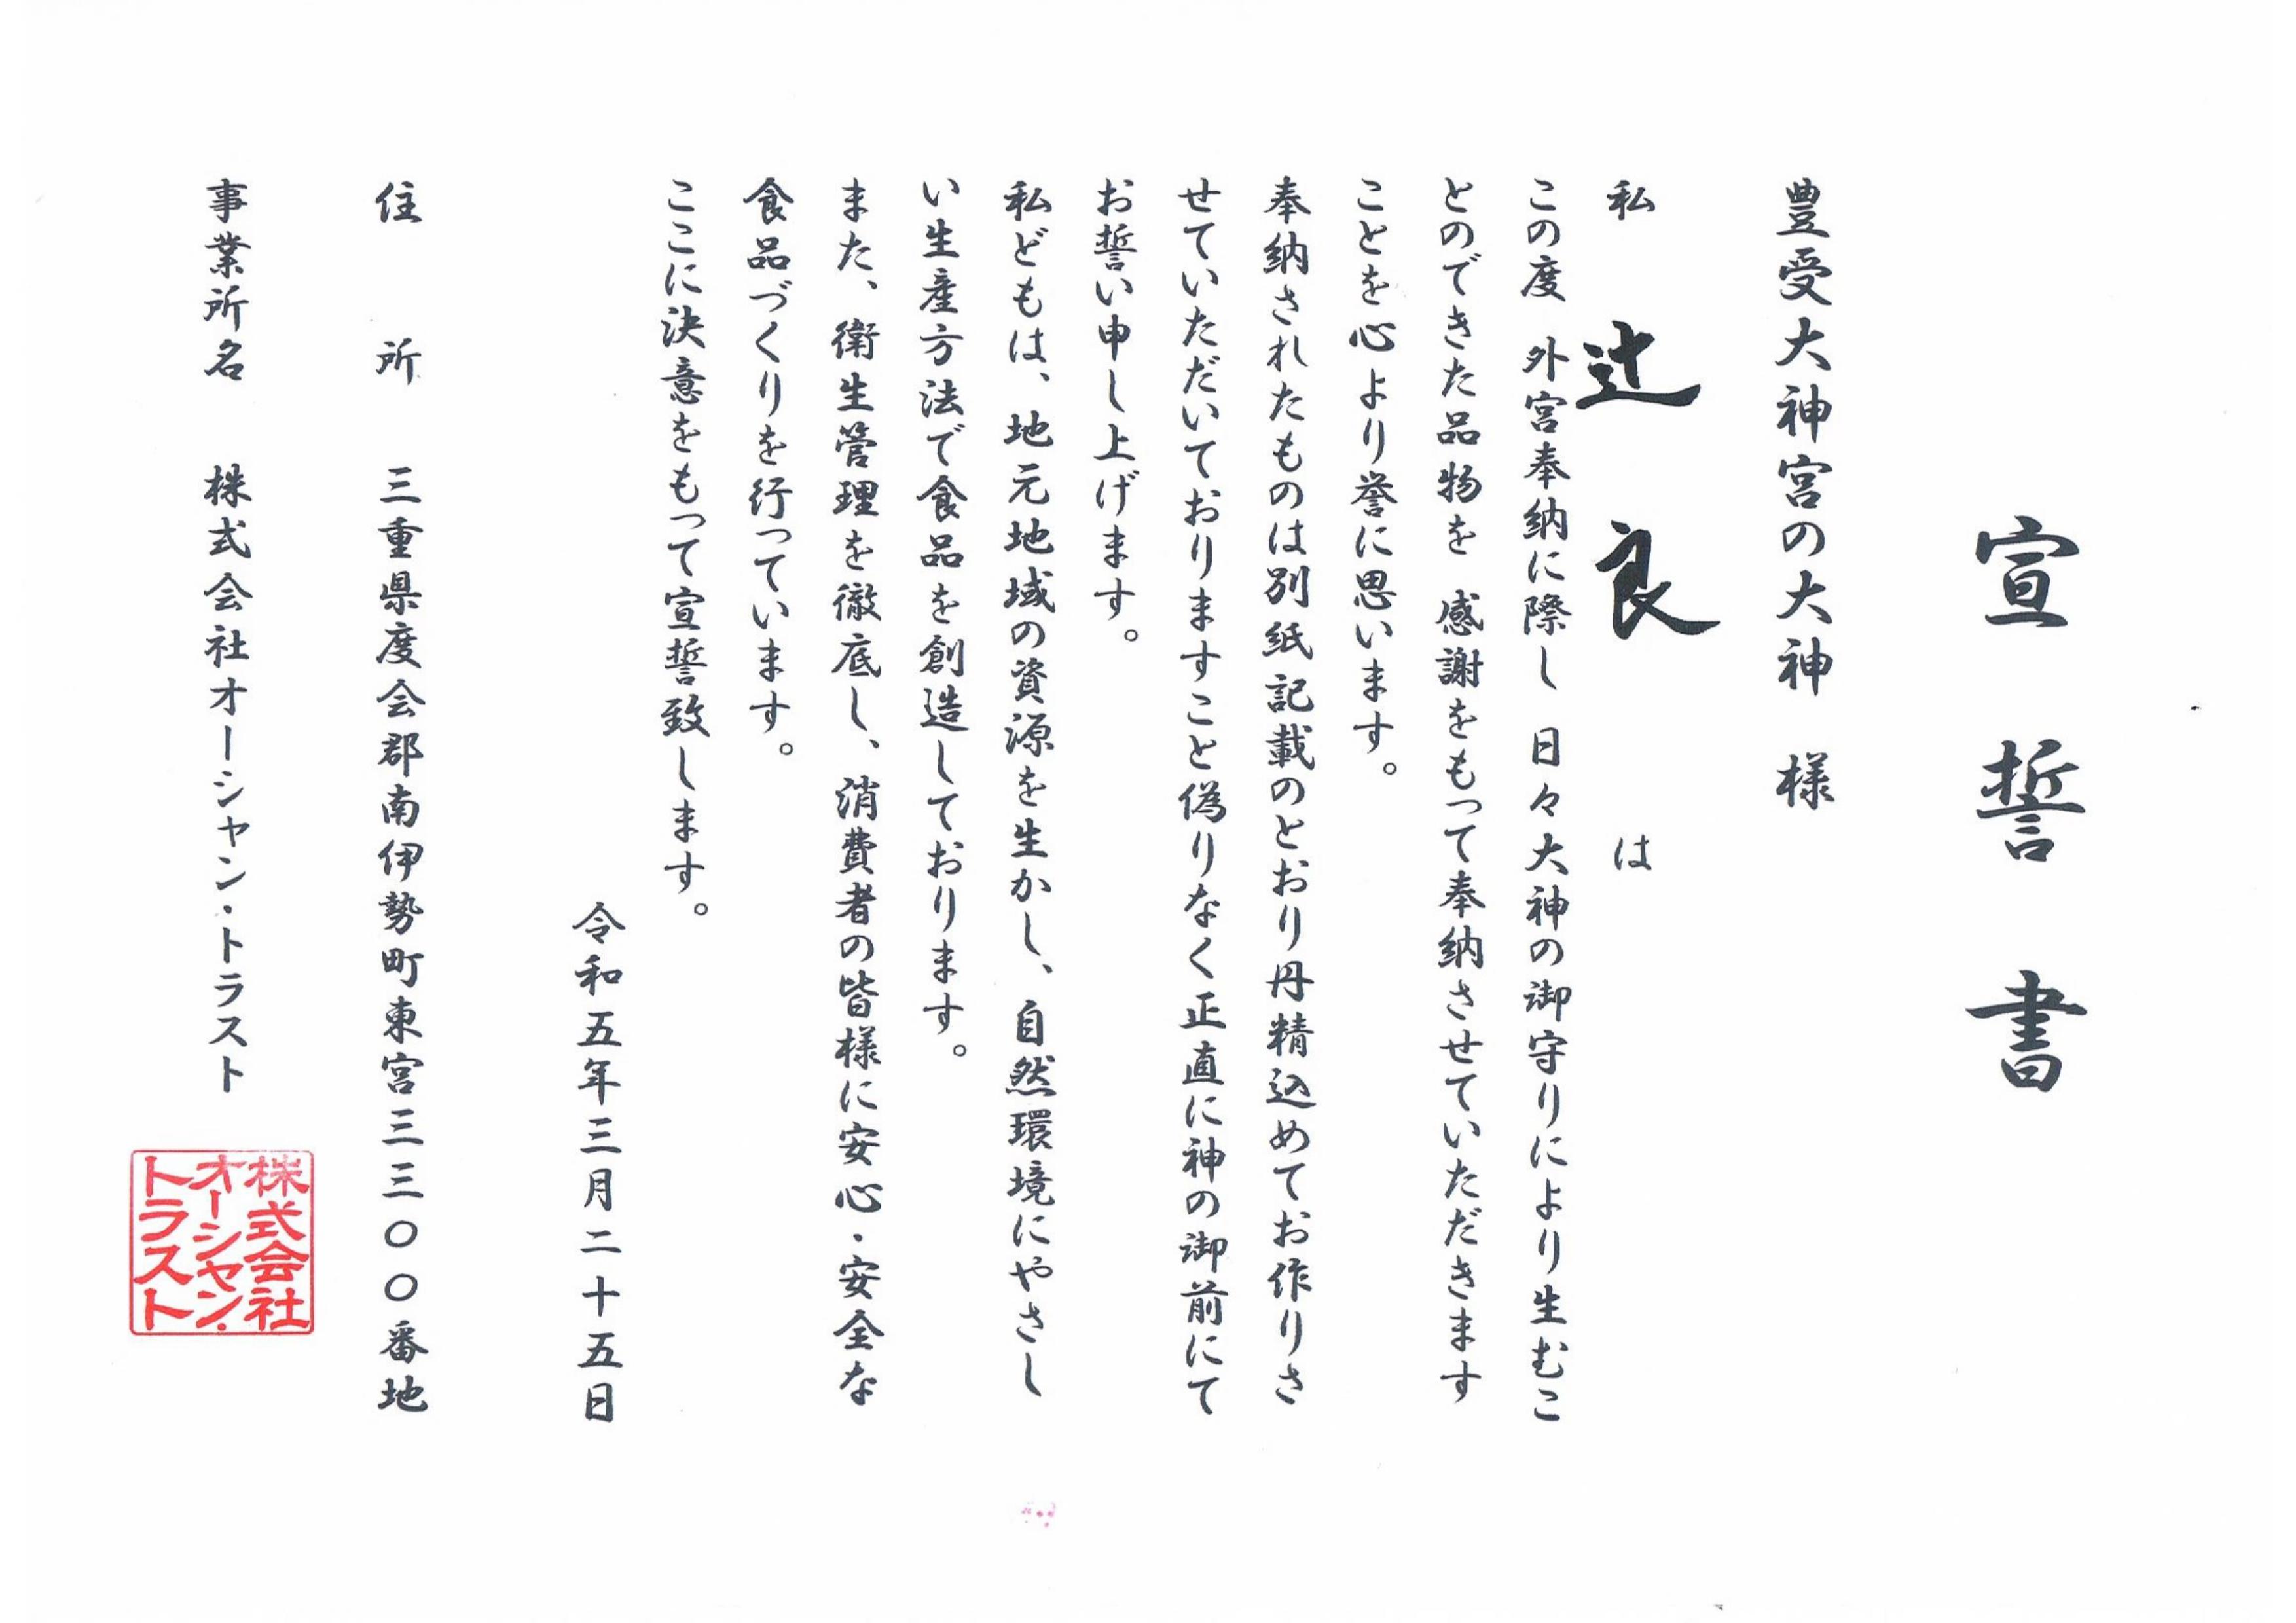 宣誓書
豊受大神宮の大神 様
私 辻 良 は
この度 外宮奉納に際し 日々大神の御守りにより生むこ
とのできた品物を 感謝をもって奉納させていただきます
ことを心より誉に思います。
奉納されたものは別紙記載のとおり丹精込めてお作りさ
せていただいておりますこと偽りなく正直に神の御前にて
お誓い申し上げます。
私どもは、地元地域の資源を生かし、自然環境にやさし
い生産方法で食品を創造しております。
また、衛生管理を徹底し、消費者の皆様に安心・安全な
食品づくりを行っています。
ここに決意をもって宣誓致します。
令和五年三月二十五日
住所 三重県度会郡南伊勢町東宮三三〇〇番地
事業所名 株式会社オーシャン・トラスト
株式会社
オーシャン・
トラスト